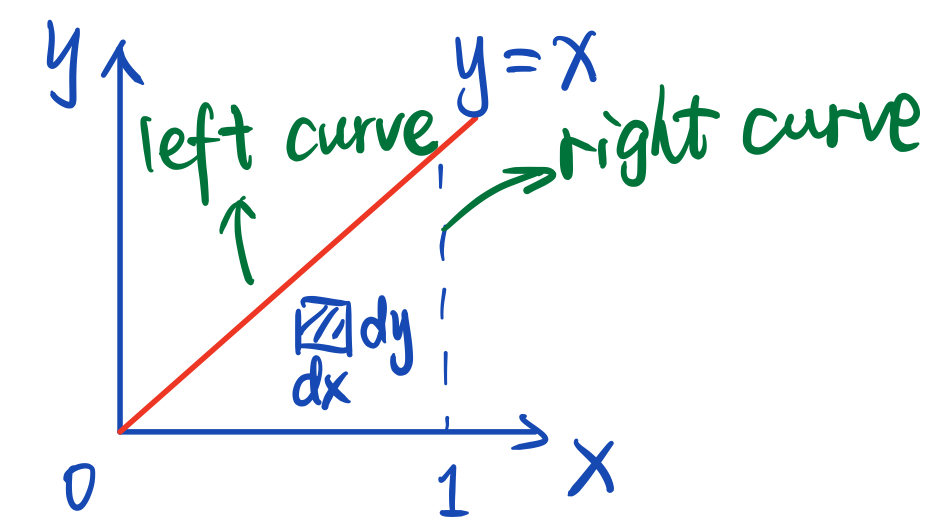 y
y = x
left curve
right curve
dy
dx
0
1
x